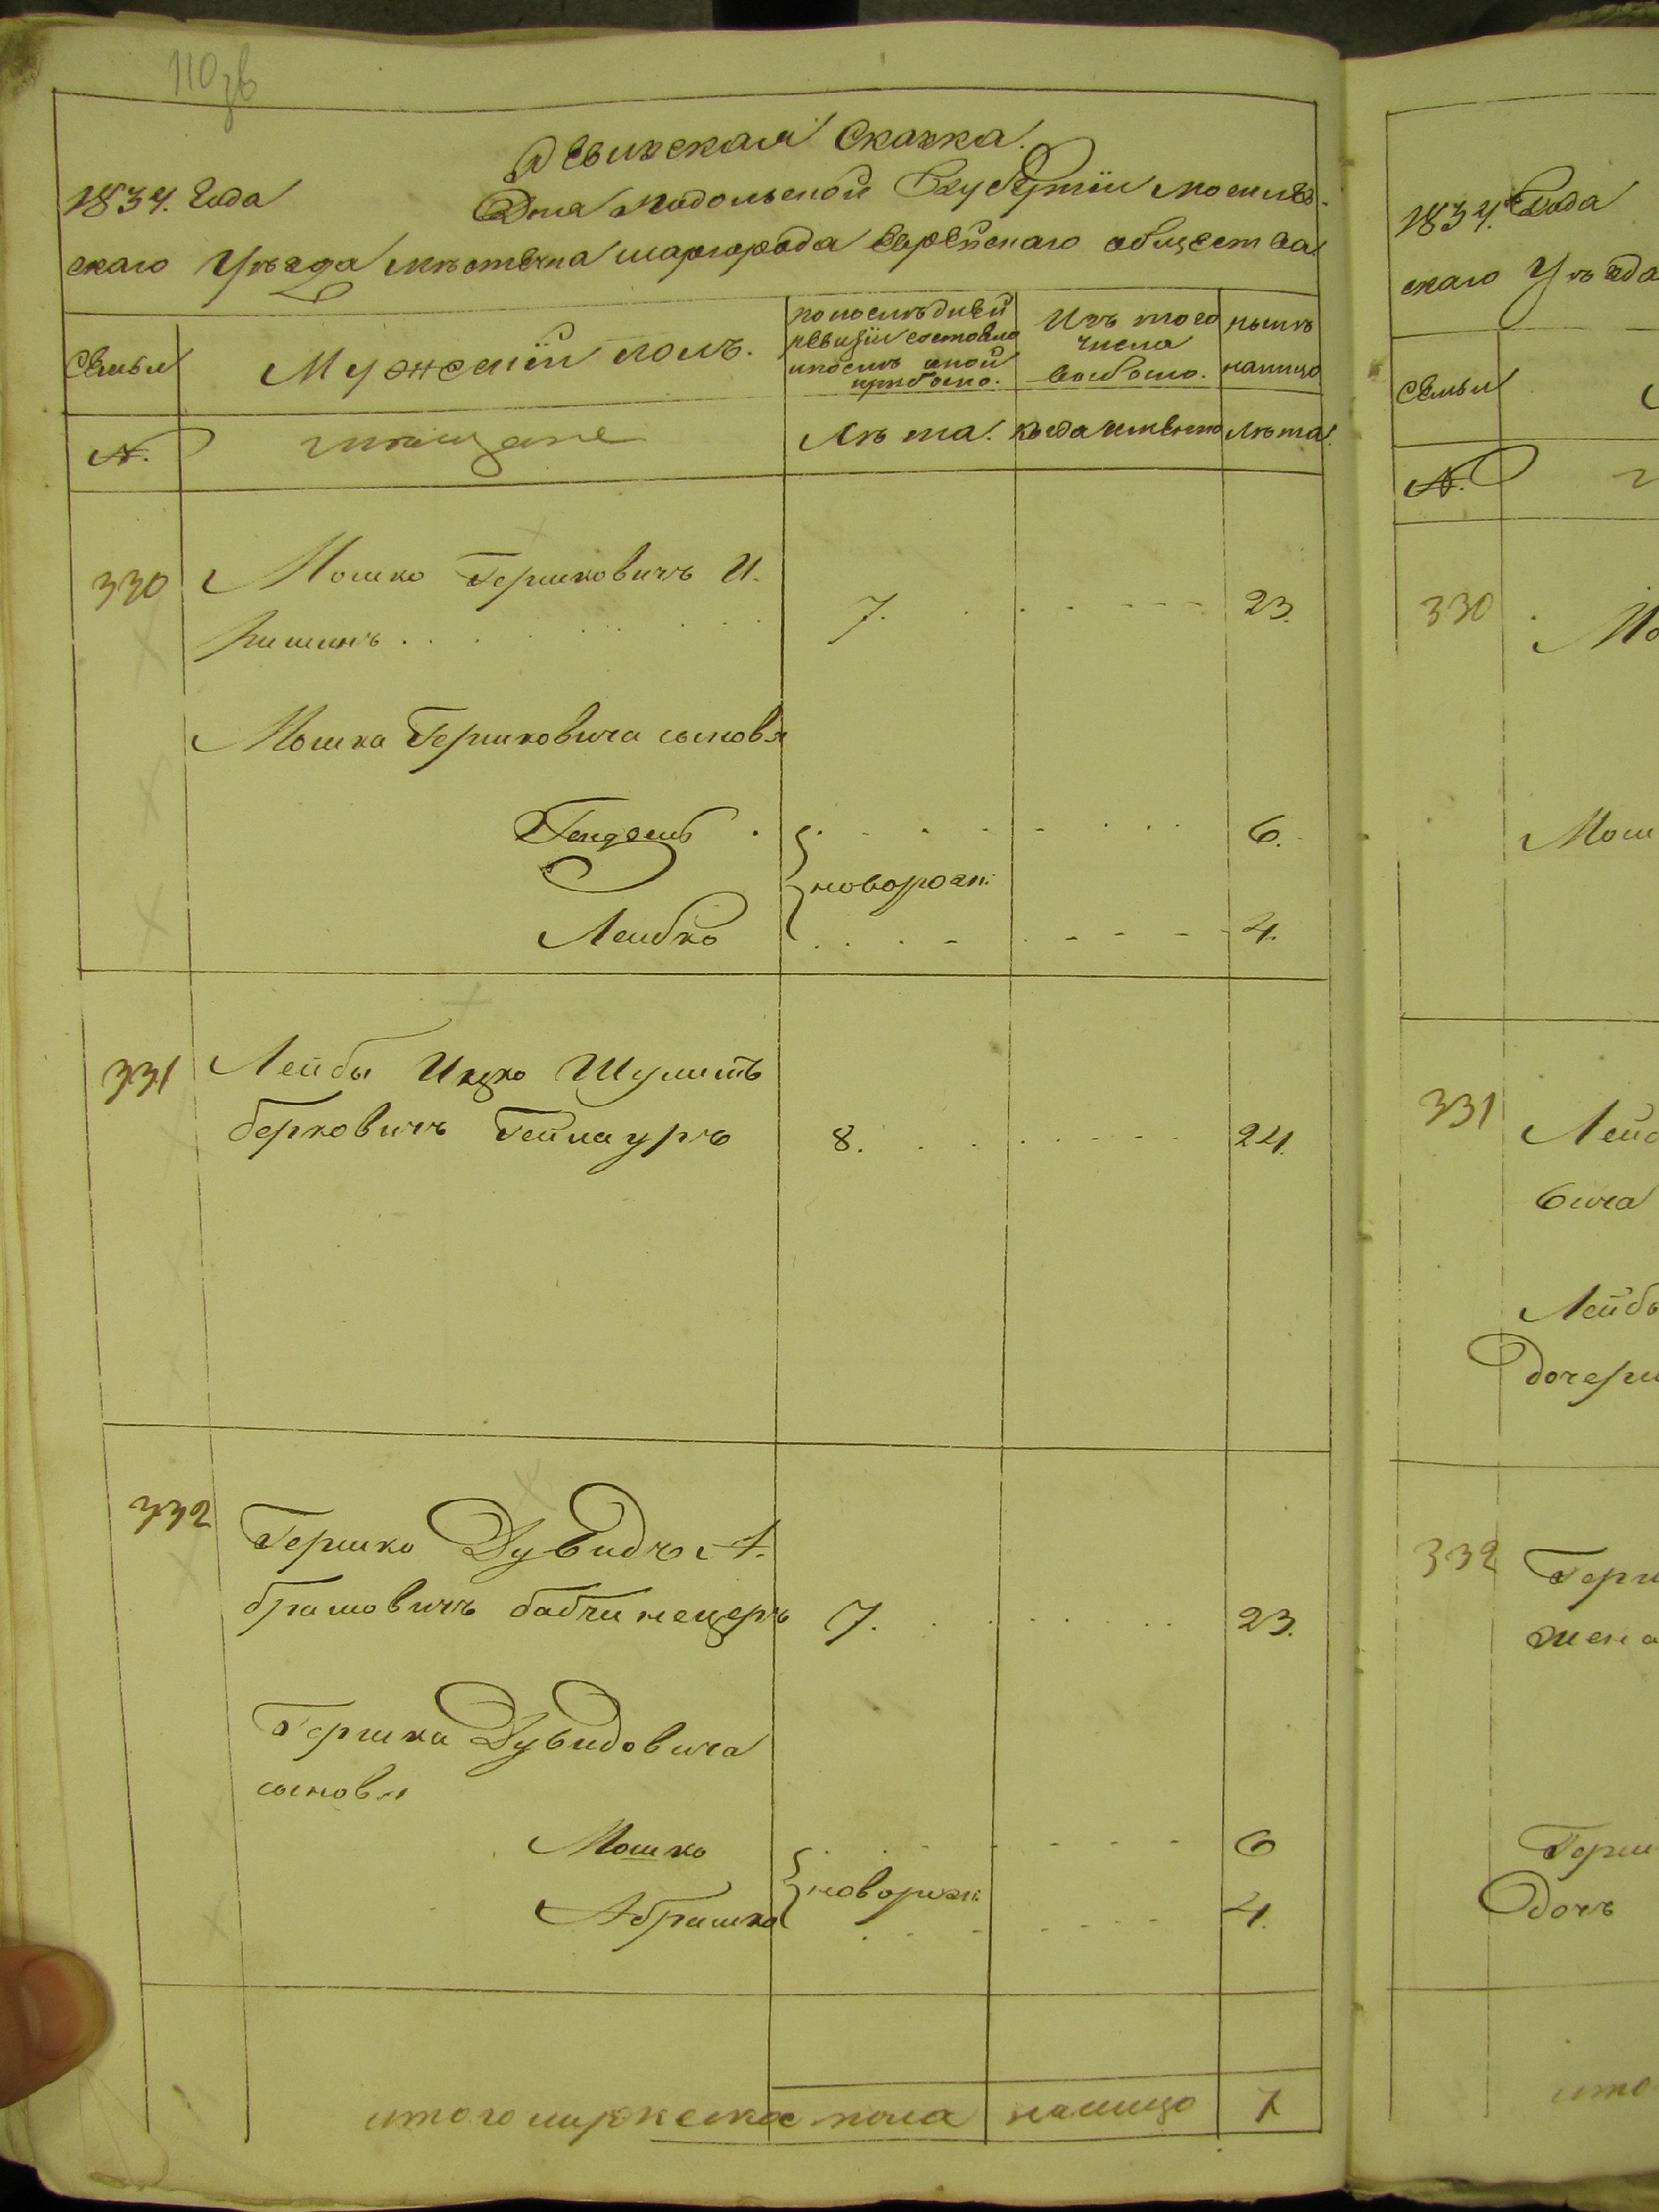 110 зв
Ревижская Сказка.
1834. Года Дня Подольской Губерніи могилев-
скаго Уѣзда мѣстечка шаргорода Еврейскаго общества
Семьи
Мужескій полъ.
по последней
ревизіи состояло
и после оной
прибыло.
Изъ того
числа
выбыло.
нынѣ
налицо
N.
мещане
Лѣта.
когда именно
Лѣта.
330 Мошко Гершковичъ И.
7. 23.
Мошка Гершковича сыновя
6.
новорожн:
Лейбко 4.
331 Лейбы Ицко Шулимъ
Берковичъ 8. 24.
332 Гершко Дувидъ А.
брамовичъ бабчинецеръ 7. 23.
Гершка Дувидовича
сыновя
Мошко 6
новорожн:
Абрамко 4.
итого мужеска пола налицо 7
1834. Года
скаго Уѣзда
Семьи
N.
330
Мо
Мош
331
Лейб
вича
Лейбы
дочери
332 Герш
жена
Герш
дочь
ито